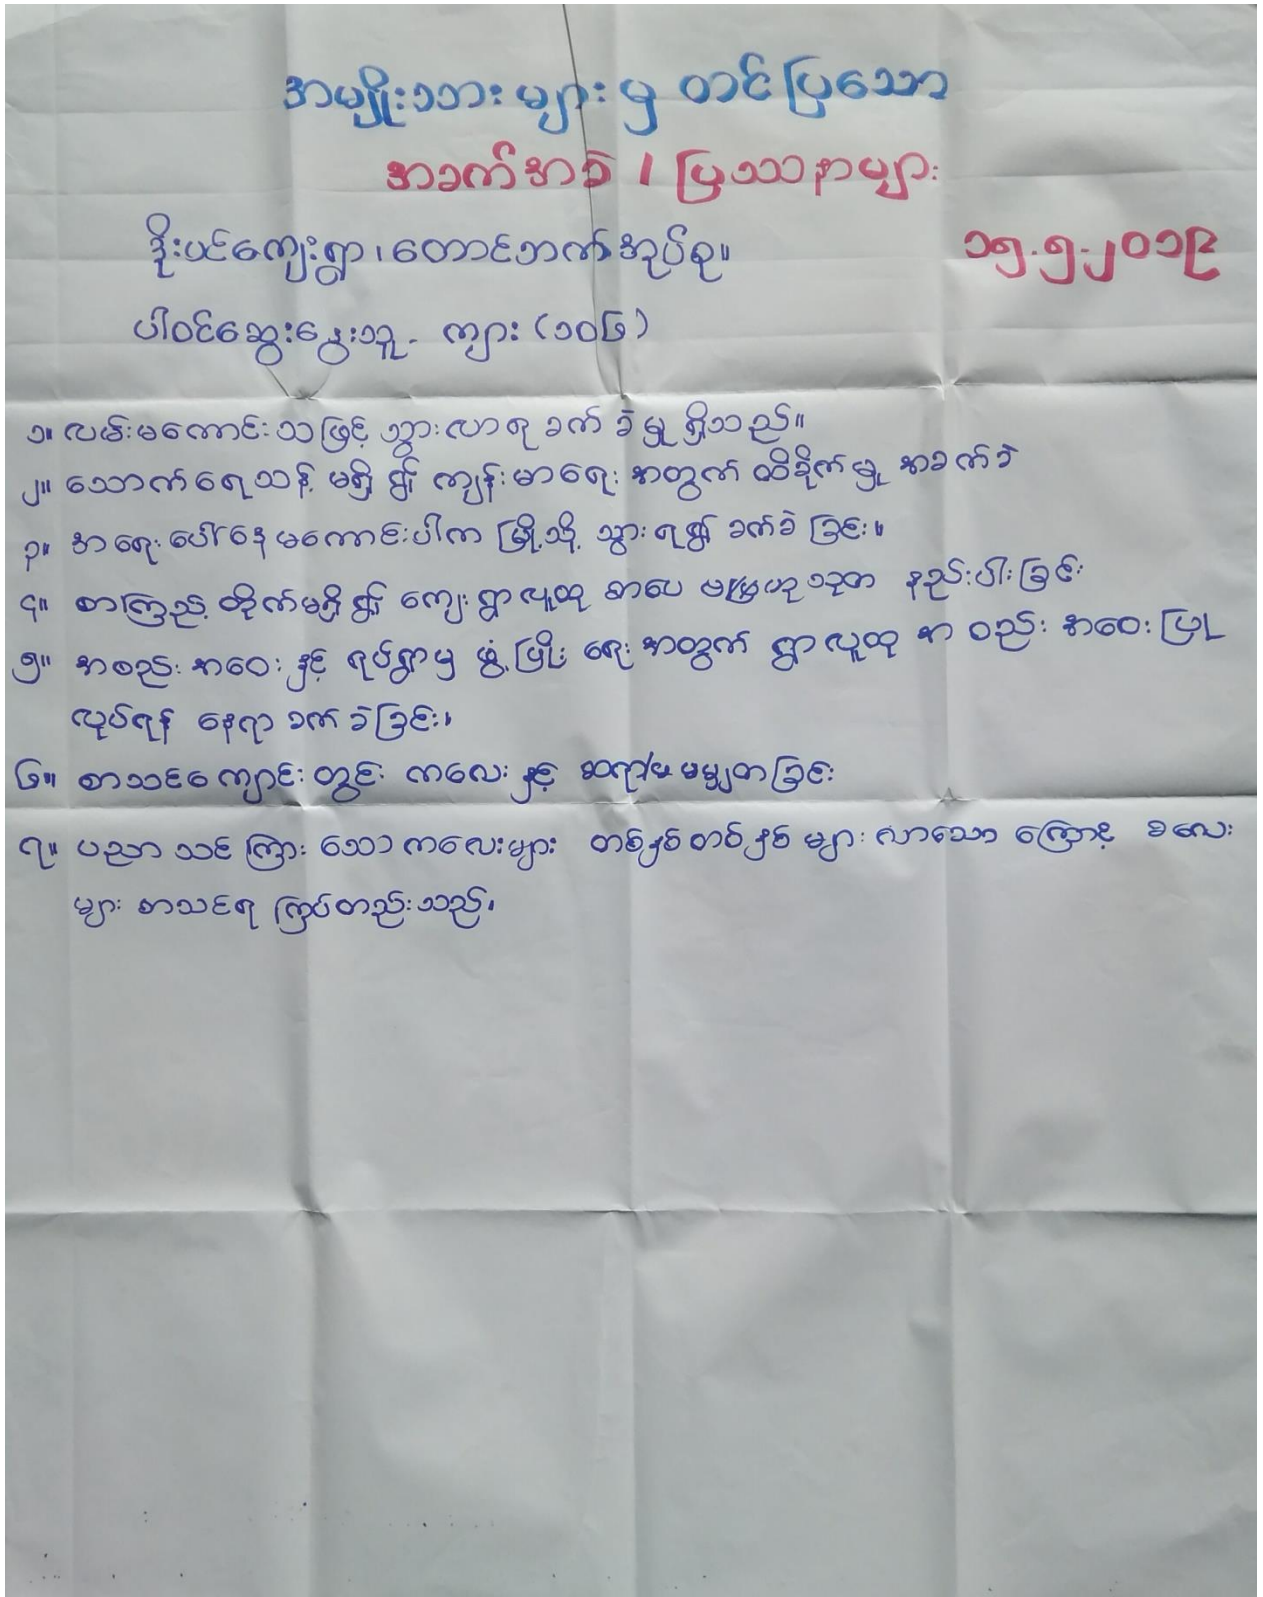 အမျိုးသားများမှ တင်ပြသော
အခက်အခဲ / ပြဿနာများ
ဒိုးပင်ကျေးရွာ၊ တောင်ဘက်အုပ်စု။ ၁၅.၅.၂၀၁၉
ပါဝင်ဆွေးနွေးသူ - ကျား (၁၀၆)
၁။ လမ်းမကောင်းသဖြင့် သွားလာရ ခက်ခဲမှု ရှိသည်။
၂။ သောက်ရေသန့် မရှိ၍ ကျန်းမာရေး အတွက် ထိခိုက်မှု အခက်ခဲ
၃။ အရေးပေါ်နေမကောင်းပါက မြို့သို့ သွားရ၍ ခက်ခဲခြင်း။
၄။ စာကြည့်တိုက်မရှိ၍ ကျေးရွာလူထု စာပေ ဗဟုသုတ နည်းပါးခြင်း
၅။ အစည်းအဝေးနှင့် ရပ်ရွာမှ ဖွံ့ဖြိုးရေးအတွက် ရွာလူထု အစည်းအဝေးပြု
လုပ်ရန် နေရာ ခက်ခဲခြင်း၊
၆။ စာသင်ကျောင်းတွင်း ကလေးနှင့် ဆရာ/မ မမျှတခြင်း
၇။ ပညာသင်ကြားသော ကလေးများ တစ်နှစ်တစ်နှစ် များလာသောကြောင့် ခလေး
များ စာသင်ရ ကြပ်တည်းသည်၊